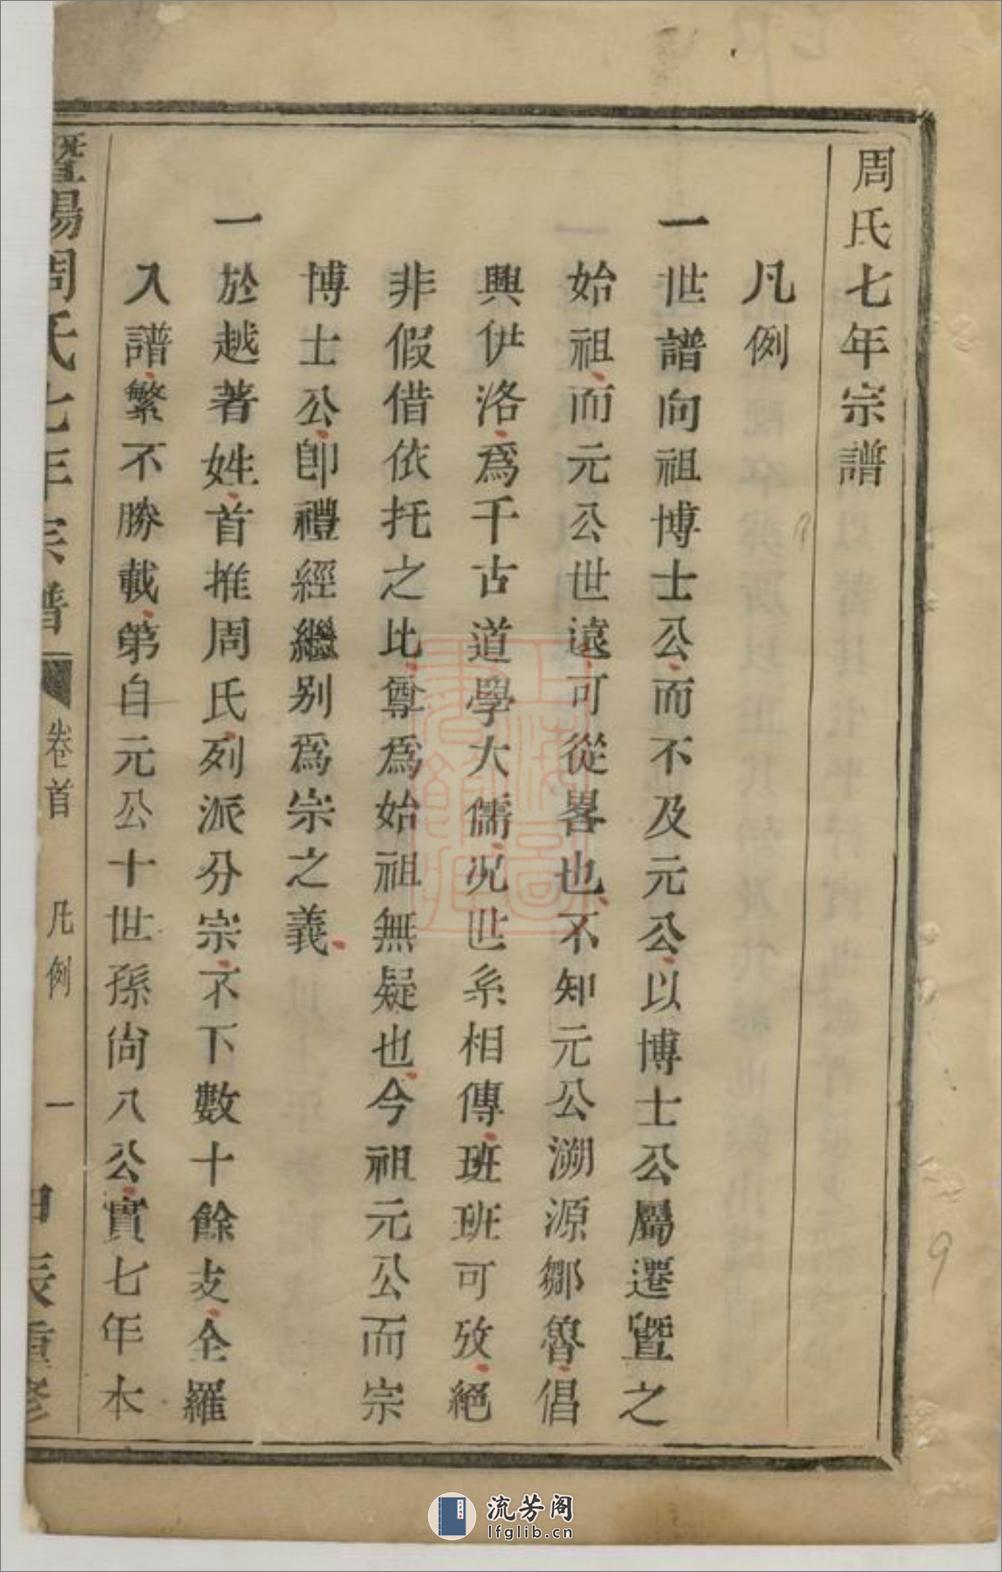 周氏七年宗譜
凡例
一世譜向祖博士公而不及元公以博士公屬遷曁之
始祖而元公世遠可從畧也不知元公溯源鄒魯倡
興伊洛為千古道學大儒况世系相傳班班可攷絕
非假借依托之比尊為始祖無疑也今祖元公而宗
博士公卽禮經繼别為宗之義
一於越著姓首推周氏列派分宗不下數十餘支全羅
入譜繁不勝載第自元公十世孫尙八公實七年本
曁陽周氏七年宗譜 卷首 凡例 一 甲辰重修
9
流芳阁
lfglib.cn